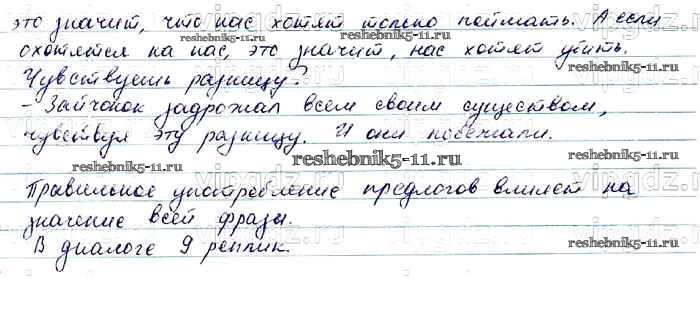 это значит, что нас хотят только поймать. А если
охотятся на нас, это значит, нас хотят убить.
Чувствуешь разницу?
- Зайчонок задрожал всем своим существом,
чувствуя эту разницу. И они побежали.
Правильное употребление предлогов влияет на
значение всей фразы.
В диалоге 9 реплик.
reshebnik5-11.ru
reshebnik5-11.ru
reshebnik5-11.ru
reshebnik5-11.ru
reshebnik5-11.ru
reshebnik5-11.ru
reshebnik5-11.ru